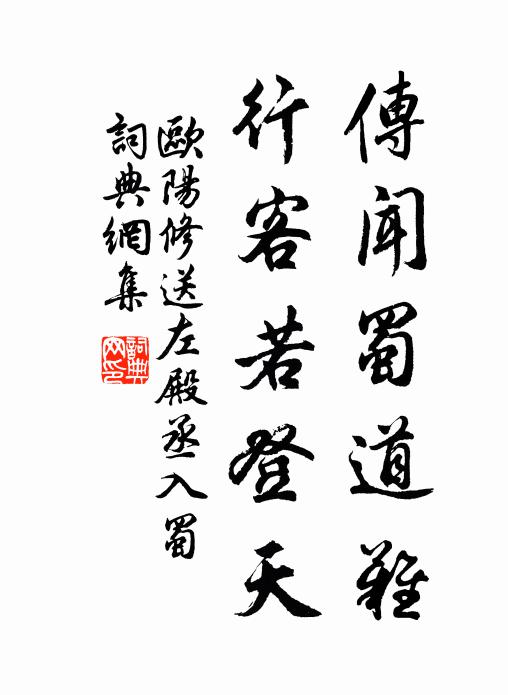 傳聞蜀道難
行客若登天
歐陽修送左殿丞入蜀
詞典網集
詞典網印